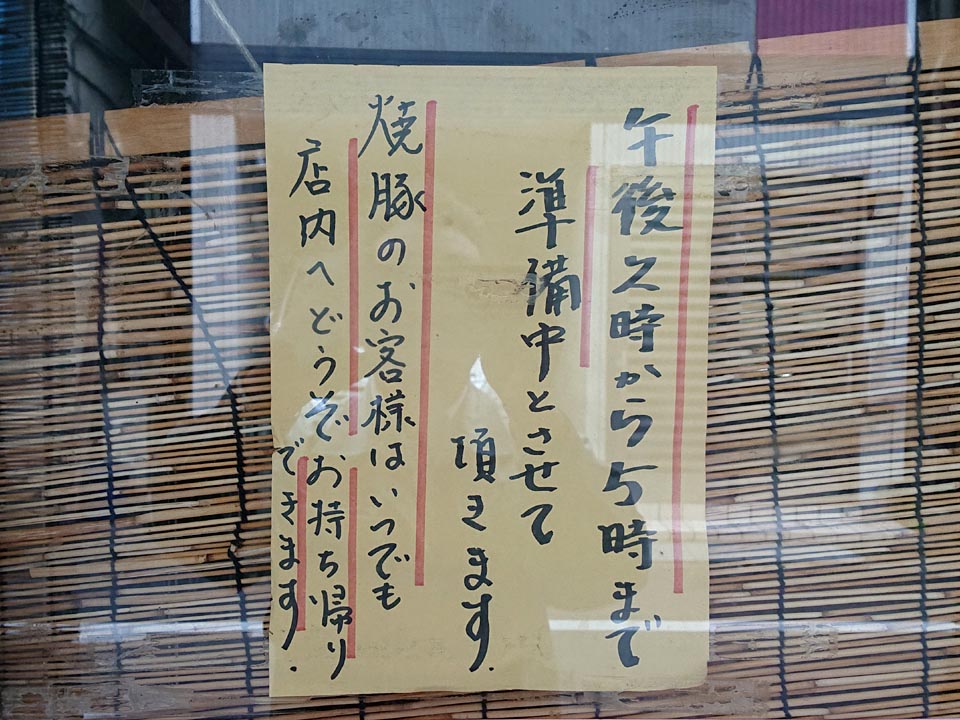 午後2時から5時まで
準備中とさせて
頂きます.
焼豚のお客様はいつでも
店内へどうぞお持ち帰り
できます.